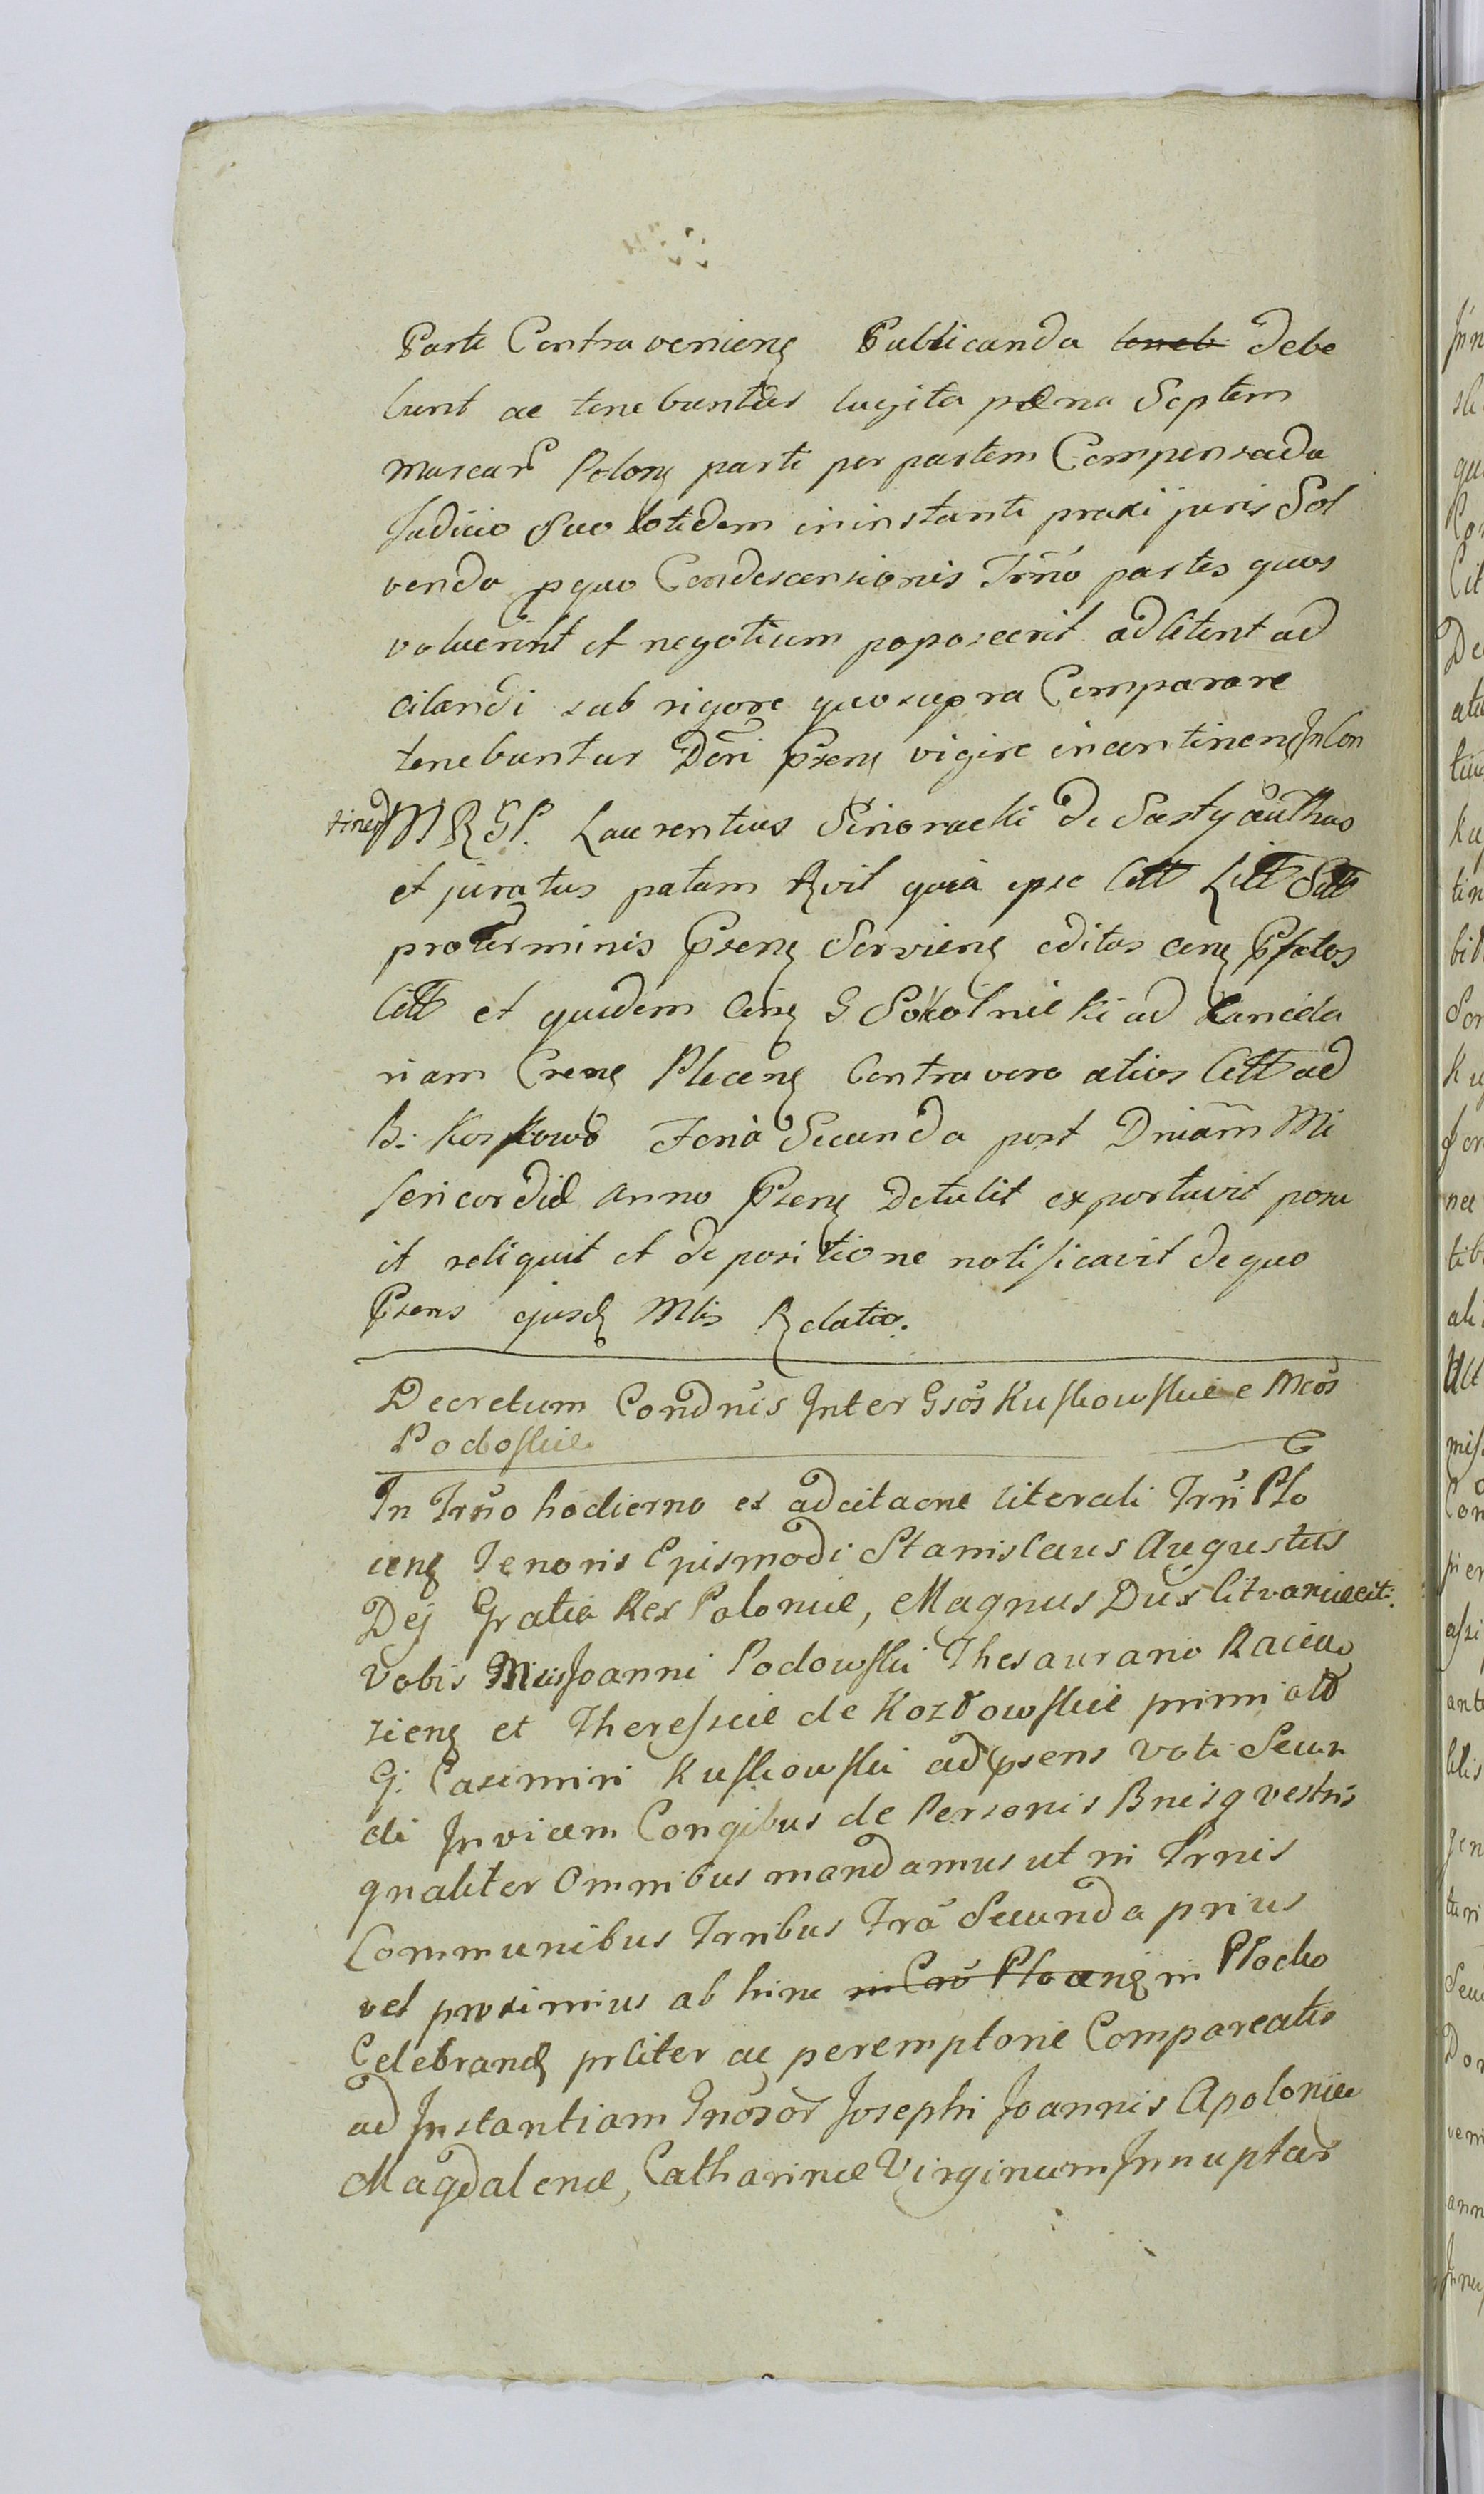 Parte Contraveniens Publicanda teneb debe
bunt ac tenebuntur lugita pæna Septem
marcar Polons parti per partem Compensada
Judicio Suo totidem in instanti praxi juris Sol
venda p quo Condescensionis Trño partes quos
voluerint et negotium poposcerit adCitent ad
citandi sub rigore quo supra Comparare
tenebuntur Dcri Pñens vigire incontinens In Con
tinen M R G P. Laurentius Sinoracki de
et juratus palam Rvit quia ipse Citt Litt
pro Terminis Pñens Serviens editas cens Pfatos
Citt et quidem Cens G Sokolnicki ad Cancela
riam Crens Plocens Contra vero alios Citt ad
B. Koskowo Feria Secunda post Dnicam Mi
sericordiæ anno Pñens Detulit exportavit posu
it reliquit et de positione notificavit de quo
Pñens ejusd Mlis Relatio.
Decretum Condnis Inter Gsos Kuskowskie e Mcos
Podoskie
In Trño hodierno ex adcitacne literali Trri Plo
cens Tenoris Ejusmodi Stanislaus Augustus
Dej Gratia Rex Poloniæ, Magnus Dux Litvaniæ ett.
Vobis Mcis Joanni Podowski Thesaurario Racią
ziens et Theressiæ de Kozłowskie primi olo
G: Casimiri Kuskowski ad psens voti Secun
di Invicem Congibus de Personis Bnisq vestris
gnaliter Omnibus mandamus ut in Trnis
Communibus Trribus Fra Secunda prius
vel proximius ab hinc in Cro Plocens in Plocko
Celebrand prliter ac peremptorie Compareatis
ad Instantiam Gnosor Josephi Joannis Apoloniæ
Magdalenæ, Catharinæ Virginum Innuptar